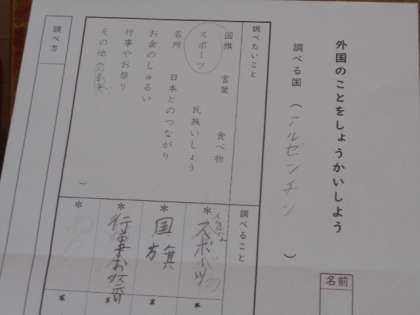 外国のことをしょうかいしよう
調べる国（アルゼンチン）
名前
調べたいこと
国旗 言葉 食べ物
スポーツ 民族いしょう
名所 日本とのつながり
お金のしゅるい
行事やお祭り
その他（ ）
調べること
＊スポーツ
＊国旗
＊行事お祭
＊
調べ方